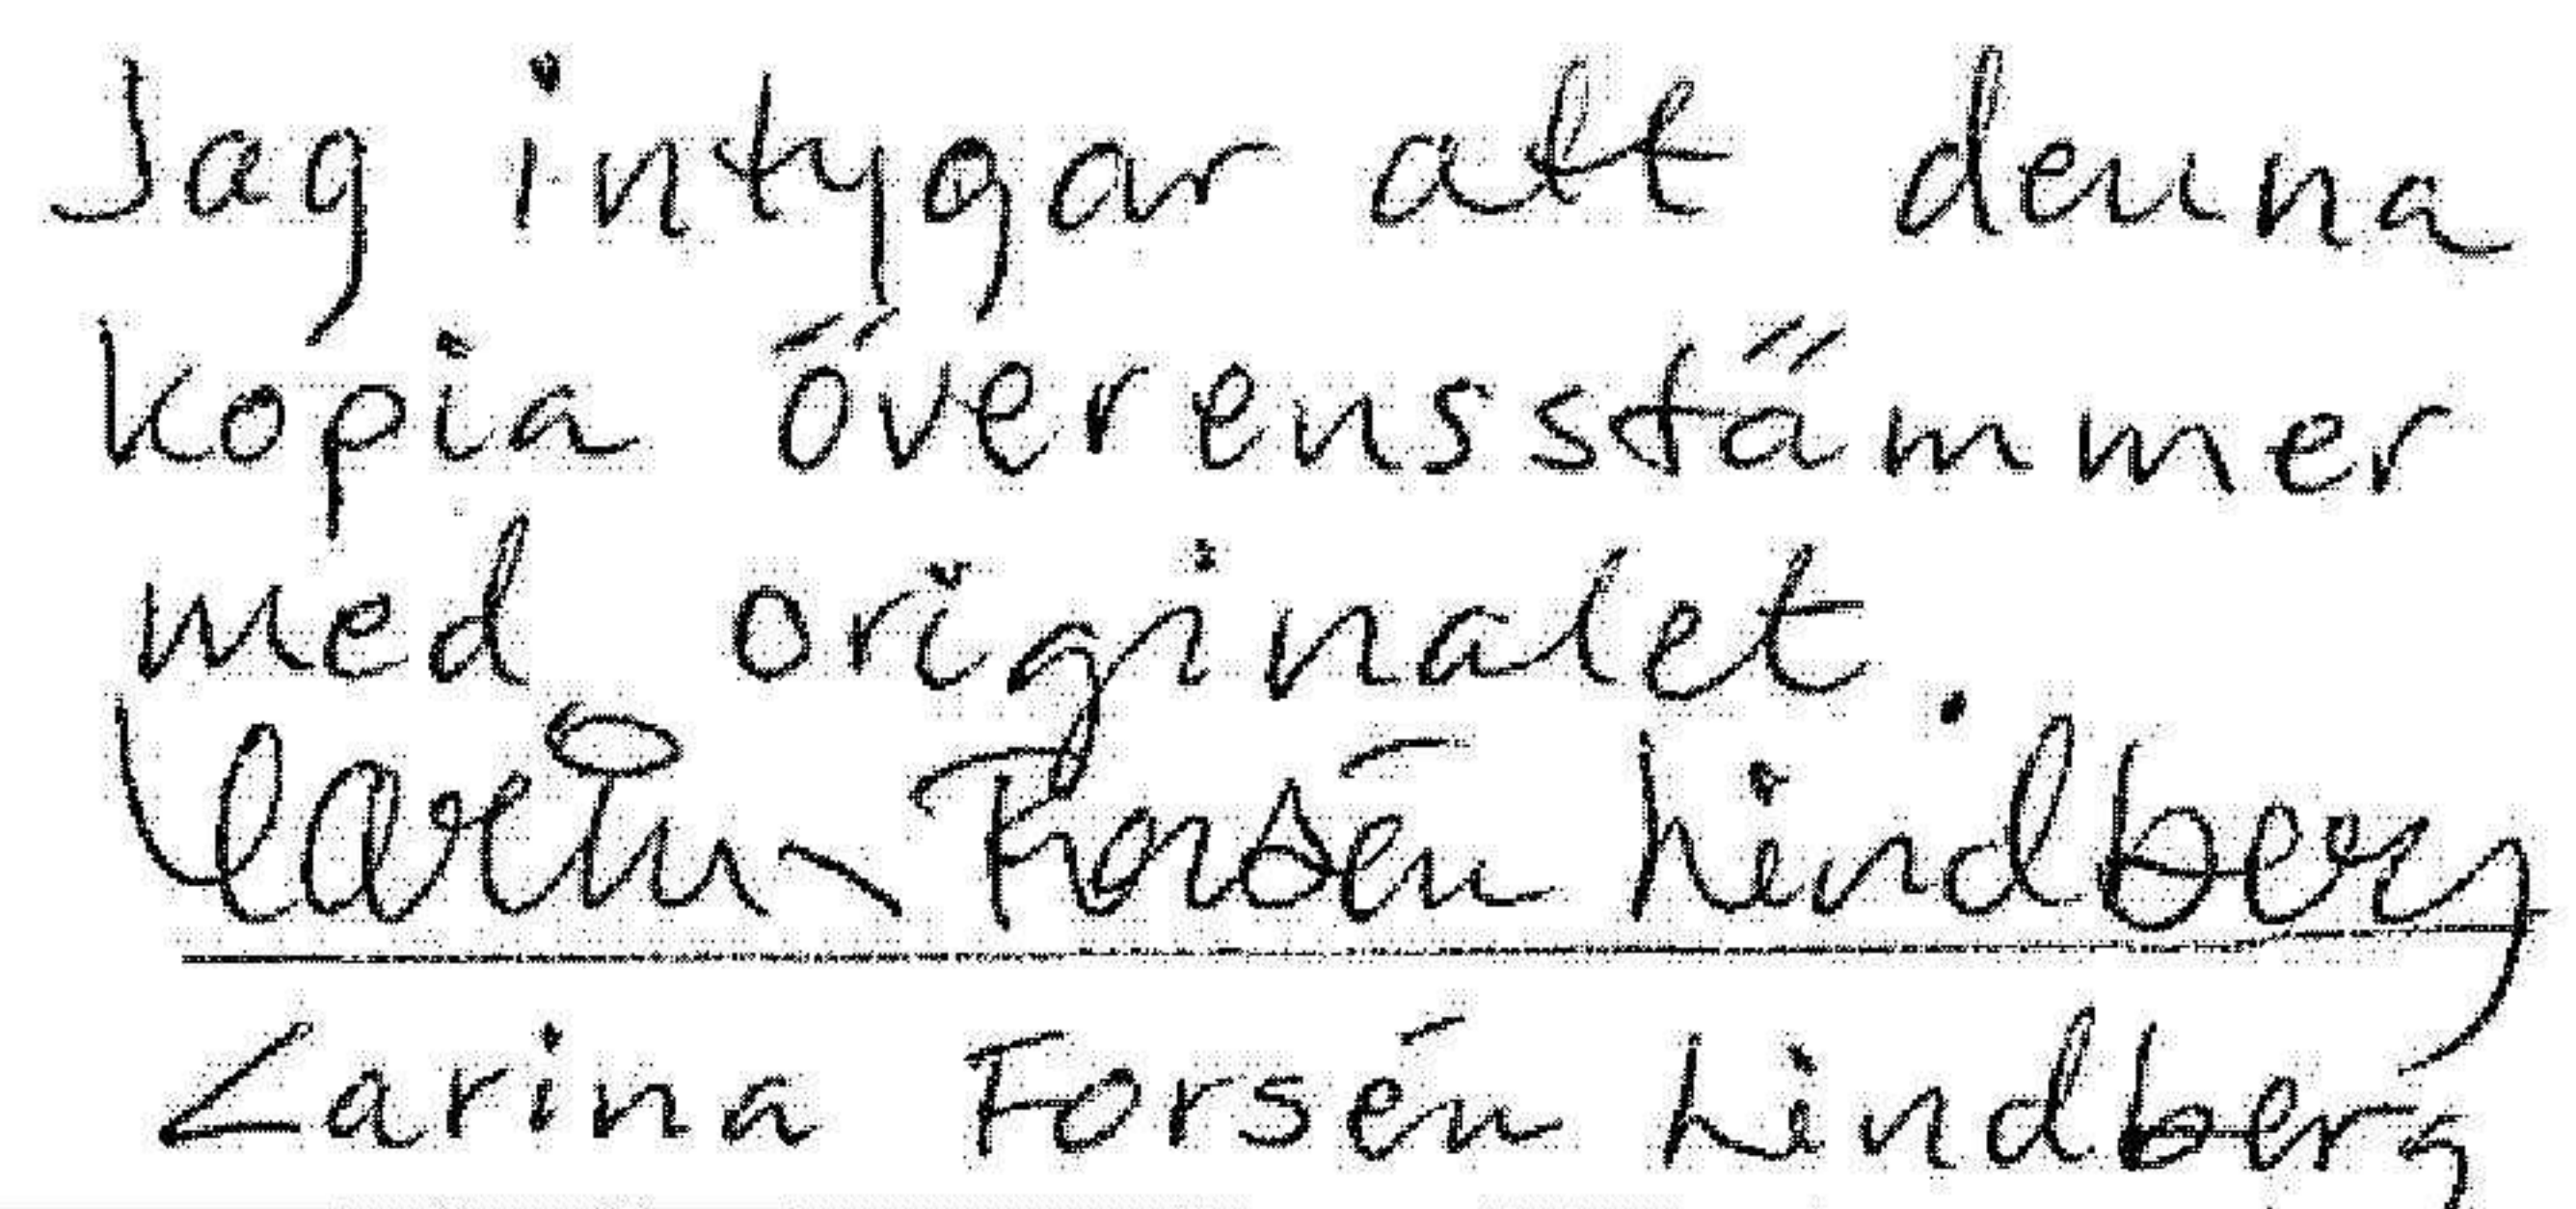 Jag intygar att denna
kopia överensstämmer
med originalet.
Carina Forsén Lindberg
Carina Forsén Lindberg